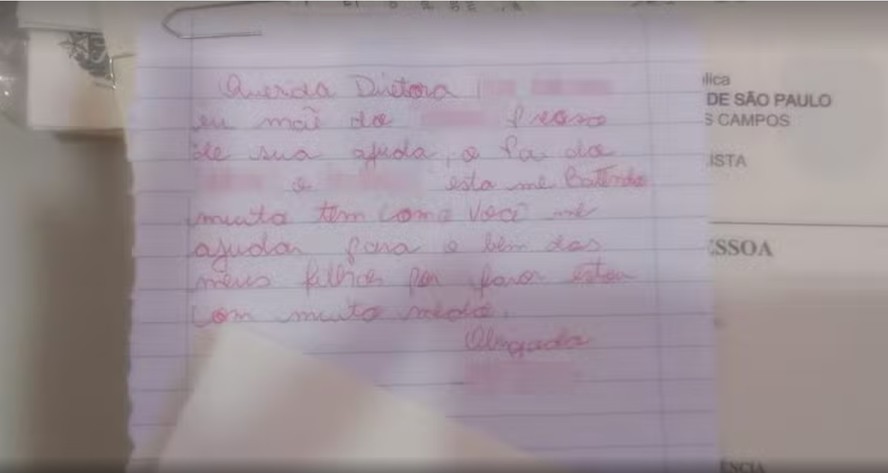 Querida Diretora
eu mãe do preciso
de sua ajuda, o Pai da
e esta me Batendo
muito tem como você me
ajudar para o bem dos
meus filhos por favor estou
com muito medo.
Obrigada
ública
DE SÃO PAULO
S CAMPOS
ISTA
ESSOA
ÊNCIA